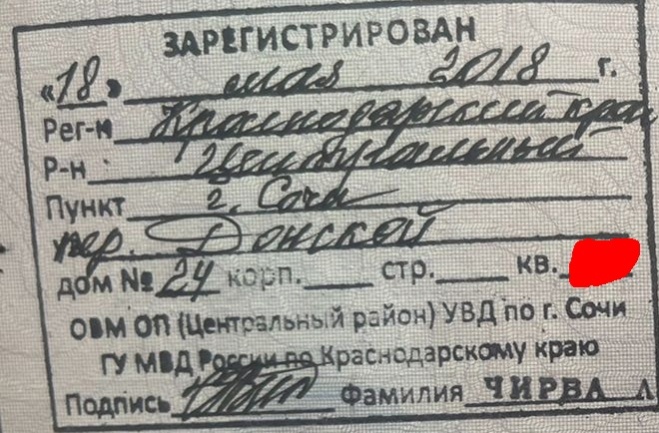 ЗАРЕГИСТРИРОВАН
«18» мая 2018 г.
Рег-н Краснодарский край
Р-н Центральный
Пункт г. Сочи
пер. Донской
дом № 24 корп. стр. кв.
ОВМ ОП (Центральный район) УВД по г. Сочи
ГУ МВД России по Краснодарскому краю
Подпись Фамилия ЧИРВА Л